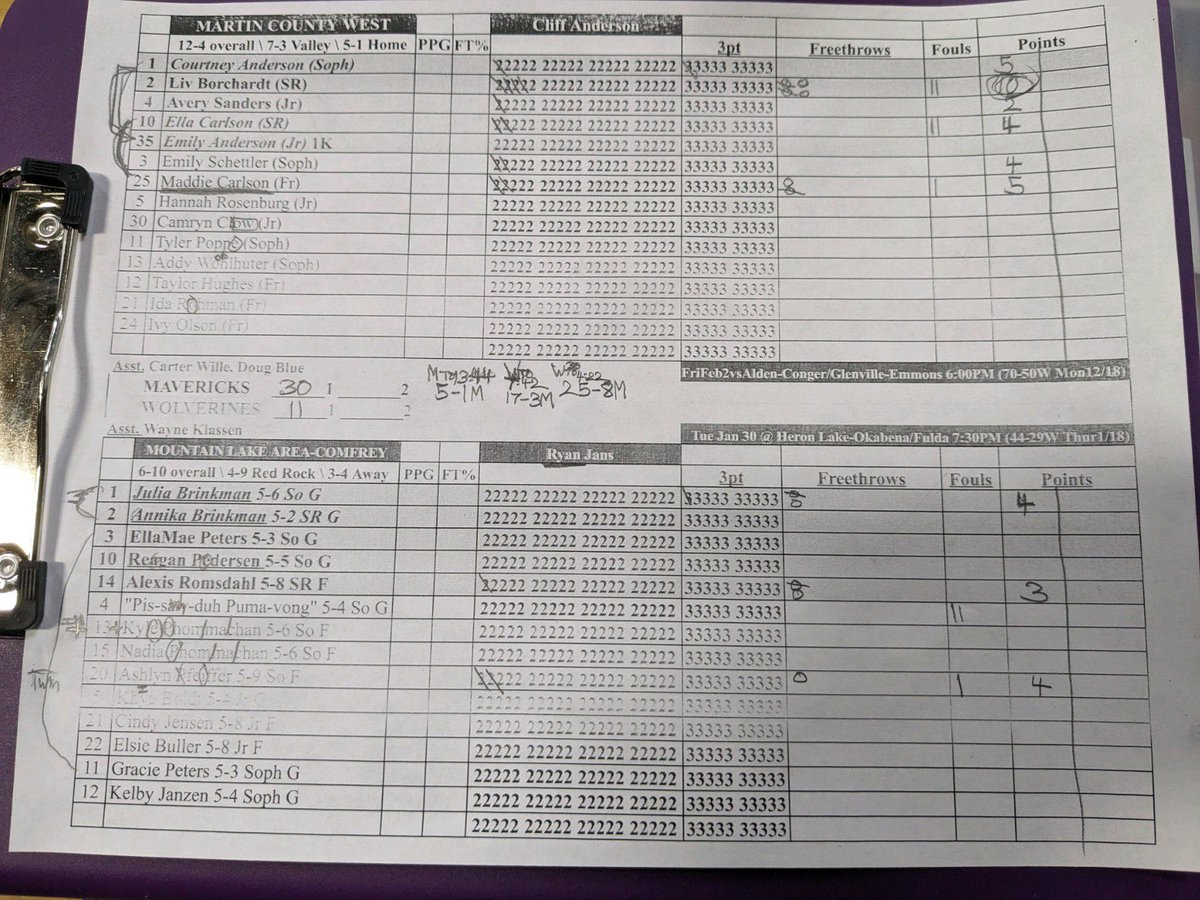 MARTIN COUNTY WEST Cliff Anderson
12-4 overall \ 7-3 Valley \ 5-1 Home PPG FT% 3pt Freethrows Fouls Points
1 Courtney Anderson (Soph) 22222 22222 22222 22222 33333 33333 5
2 Liv Borchardt (SR) 22222 22222 22222 22222 33333 33333 11 10
4 Avery Sanders (Jr) 22222 22222 22222 22222 33333 33333 2
10 Ella Carlson (SR) 22222 22222 22222 22222 33333 33333 11 4
35 Emily Anderson (Jr) 1K 22222 22222 22222 22222 33333 33333
3 Emily Schettler (Soph) 22222 22222 22222 22222 33333 33333 4
25 Maddie Carlson (Fr) 22222 22222 22222 22222 33333 33333 8 1 5
5 Hannah Rosenburg (Jr) 22222 22222 22222 22222 33333 33333
30 Camryn Clow (Jr) 22222 22222 22222 22222 33333 33333
11 Tyler Poppe (Soph) 22222 22222 22222 22222 33333 33333
13 Addy Wohlhuter (Soph) 22222 22222 22222 22222 33333 33333
12 Taylor Hughes (Fr) 22222 22222 22222 22222 33333 33333
21 Ida Rohman (Fr) 22222 22222 22222 22222 33333 33333
24 Ivy Olson (Fr) 22222 22222 22222 22222 33333 33333
22222 22222 22222 22222 33333 33333
Asst. Carter Wille, Doug Blue
FriFeb2vsAlden-Conger/Glenville-Emmons 6:00PM (70-50W Mon12/18)
MAVERICKS 30 1 2 5-1M 17-3M 25-8M
WOLVERINES 11 1 2
Asst. Wayne Klassen
Tue Jan 30 @ Heron Lake-Okabena/Fulda 7:30PM (44-29W Thur1/18)
MOUNTAIN LAKE AREA-COMFREY Ryan Jans
6-10 overall \ 4-9 Red Rock \ 3-4 Away PPG FT% 3pt Freethrows Fouls Points
1 Julia Brinkman 5-6 So G 22222 22222 22222 22222 33333 33333 4
2 Annika Brinkman 5-2 SR G 22222 22222 22222 22222 33333 33333
3 EllaMae Peters 5-3 So G 22222 22222 22222 22222 33333 33333
10 Reagan Pedersen 5-5 So G 22222 22222 22222 22222 33333 33333
14 Alexis Romsdahl 5-8 SR F 22222 22222 22222 22222 33333 33333 3
4 "Pis-saw-duh Puma-vong" 5-4 So G 22222 22222 22222 22222 33333 33333 11
13 Phommachan 5-6 So F 22222 22222 22222 22222 33333 33333
15 Nadia Phommachan 5-6 So F 22222 22222 22222 22222 33333 33333
20 Ashlyn Pfeiffer 5-9 So F 22222 22222 22222 22222 33333 33333 0 1 4
5 22222 22222 22222 22222 33333 33333
21 Cindy Jensen 5-8 Jr F 22222 22222 22222 22222 33333 33333
22 Elsie Buller 5-8 Jr F 22222 22222 22222 22222 33333 33333
Twin
11 Gracie Peters 5-3 Soph G 22222 22222 22222 22222 33333 33333
12 Kelby Janzen 5-4 Soph G 22222 22222 22222 22222 33333 33333
22222 22222 22222 22222 33333 33333